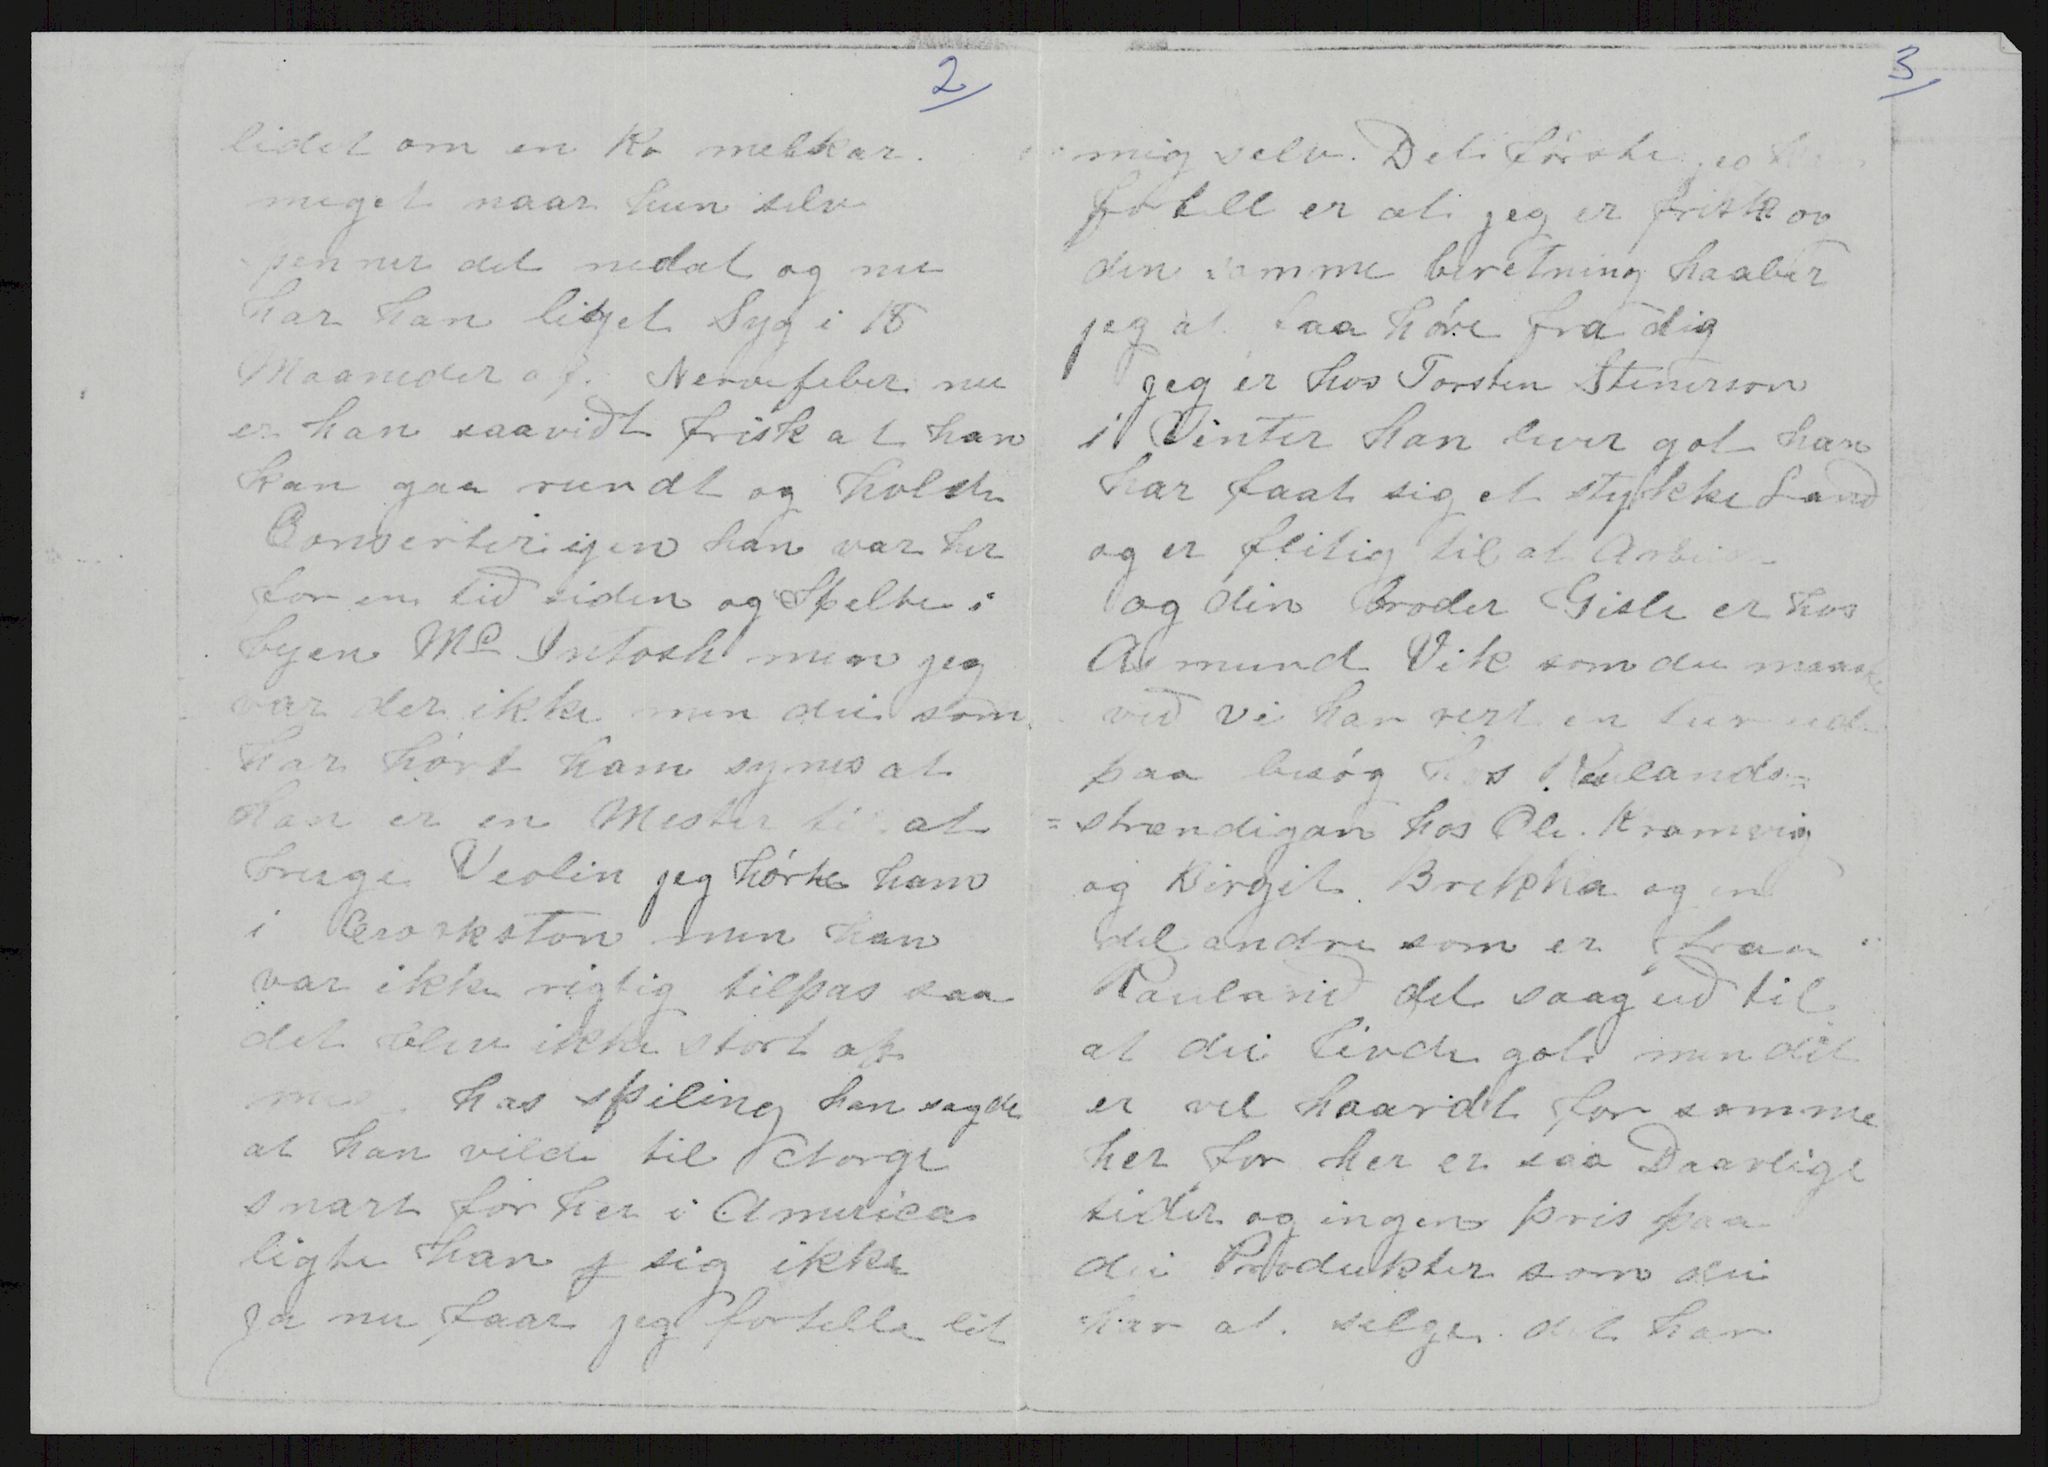 2
lidet om en Ko melkar
meget naar hun selv
spenner det nedat og nu
har han liget Syg i 18
Maaneder af Nervefeber nu
er han saavidt frisk at han
kan gaa rundt og holde
Conserter igen han var her
for en tid siden og Spelte i
byen Mc Intosh men jeg
var der ikke men dei som
har hørt ham synes at
han er en Mester til at
bruge Veolin jeg hørte ham
i Crookston men han
var ikke rigtig tilpas saa
det blev ikke stort af
has spiling han sagde
at han vilde til Norge
snart for her i America
ligte han sig ikke
Ja nu faar jeg fortelle lit
3
mig selv. Det første jeg
fotell er at jeg er frisk og
den samme beretning haaber
jeg at faa høre fra dig
jeg er hos Torsten Stenerson
i Vinter han lever got han
har faat sig et stykke Land
og er flitig til at Arbeide
og din broder Gisle er hos
Asmund Vik som du maaske
ved vi har vert en tur ud
paa besøg hos Raulands-
=strændigan hos Ole Kramvig
og Birgit Brekka og en
del andre som er fraa
Rauland det saag ud til
at dei levde got men det
er vel haardt for somme
her for her er saa Daarlige
tider og ingen pris paa
dei Produkter som dei
har at selge det har